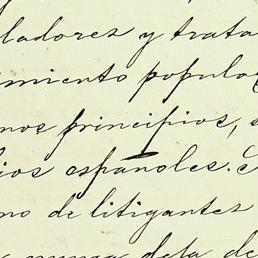 ladores y trata
imiento popula
mos principios, s
ios españoles. S
no de litigantes
nunca deja de